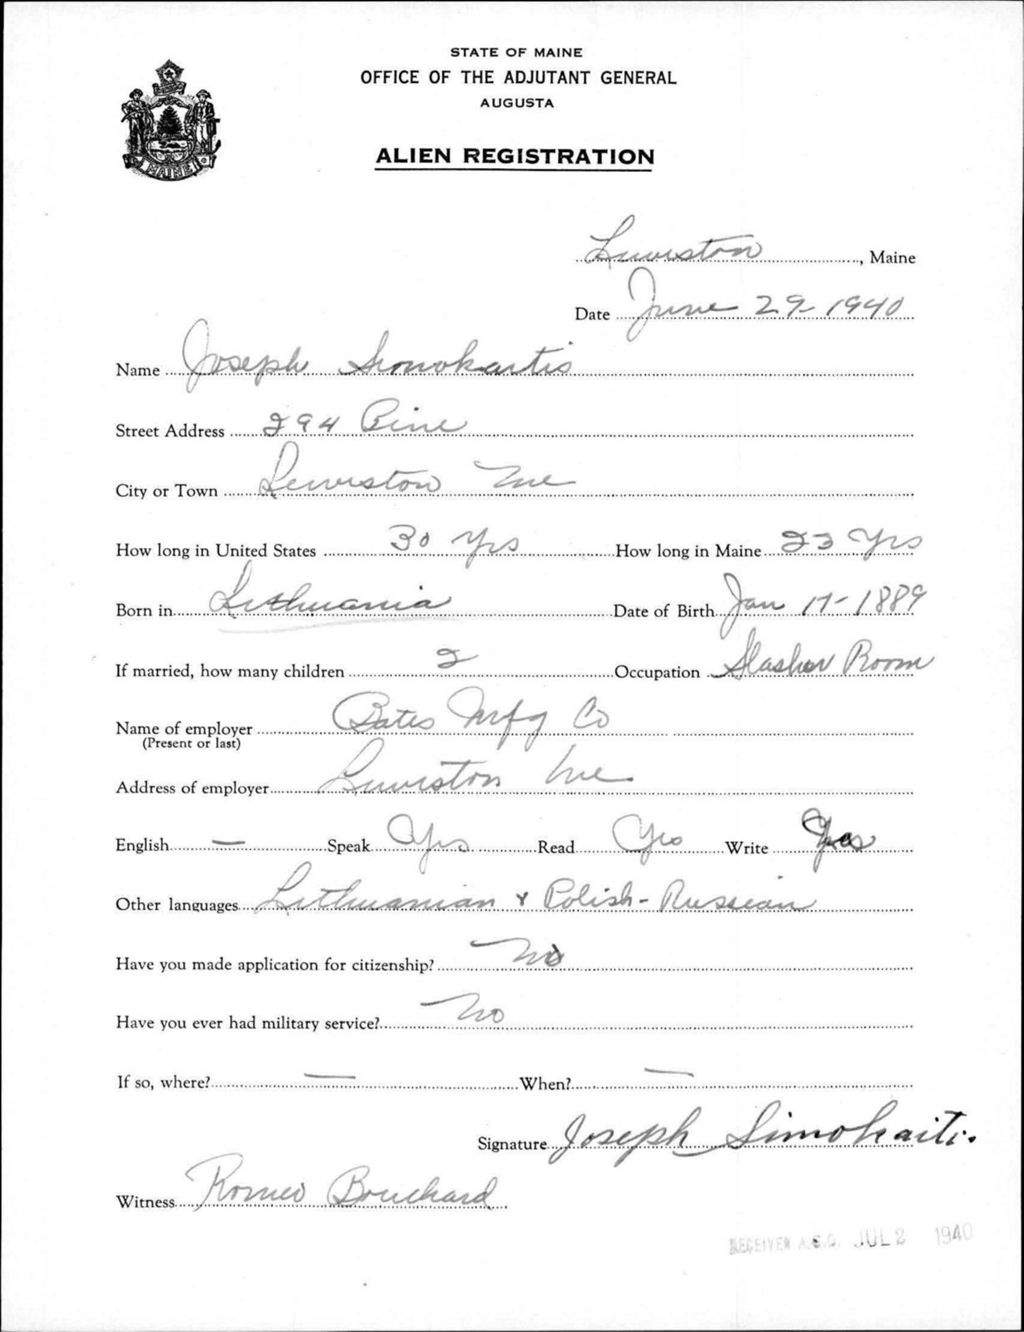 STATE OF MAINE
OFFICE OF THE ADJUTANT GENERAL
AUGUSTA
ALIEN REGISTRATION
MAINE
Lewiston, Maine
Date June 29-1940
Name Joseph Simokaitis
Street Address 294 Pine
City or Town Lewiston Me
How long in United States 30 Yrs How long in Maine 23 Yrs
Born in Lithuania Date of Birth Jan 17-1889
If married, how many children 2 Occupation Slasher Room
Name of employer Bates Mfg Co
(Present or last)
Address of employer Lewiston Me
English — Speak Yes Read Yes Write Yes
Other languages Lithuanian & Polish-Russian
Have you made application for citizenship? No
Have you ever had military service? No
If so, where? — When? —
Signature Joseph Simokaitis
Witness Romeo Bouchard
RECEIVED A.G.O. JUL 2 1940